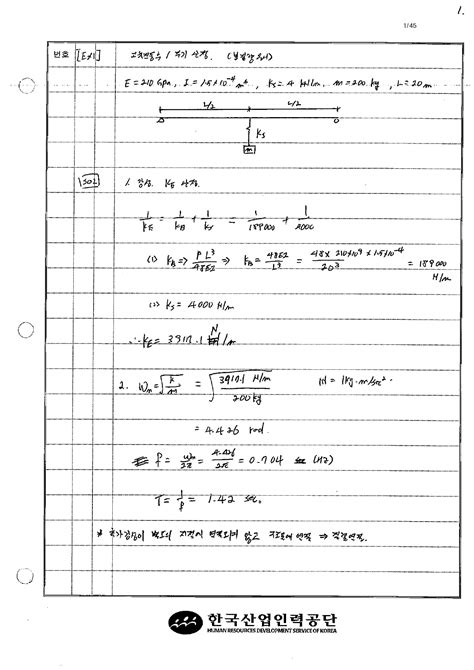 1.
1/45
번호 [Ex1] 고유진동수 / 주기 산정. (비감쇠)
E = 210 Gpa, I = 1.5×10⁻⁴ m⁴, Ks = 4 kN/m. m = 200 kg, L = 20 m
L/2 L/2
Ks
m
SOL 1. 강성. KE 산정.
1/KE = 1/KB + 1/Ks = 1/189000 + 1/4000
(1) KB ⇒ PL³/48EI ⇒ KB = 48EI/L³ = 48 × 210×10⁹ × 1.5×10⁻⁴/20³ = 189000 N/m
(2) Ks = 4000 N/m
∴ KE = 3917.1 N/m
2. Wn = √(K/m) = √(3917.1 N/m / 200 kg) N = 1kg·m/sec².
= 4.426 rad.
f = Wn/2π = 4.426/2π = 0.704 (Hz)
T = 1/f = 1.42 sec.
⇒ 직렬연결.
한국산업인력공단
HUMAN RESOURCES DEVELOPMENT SERVICE OF KOREA